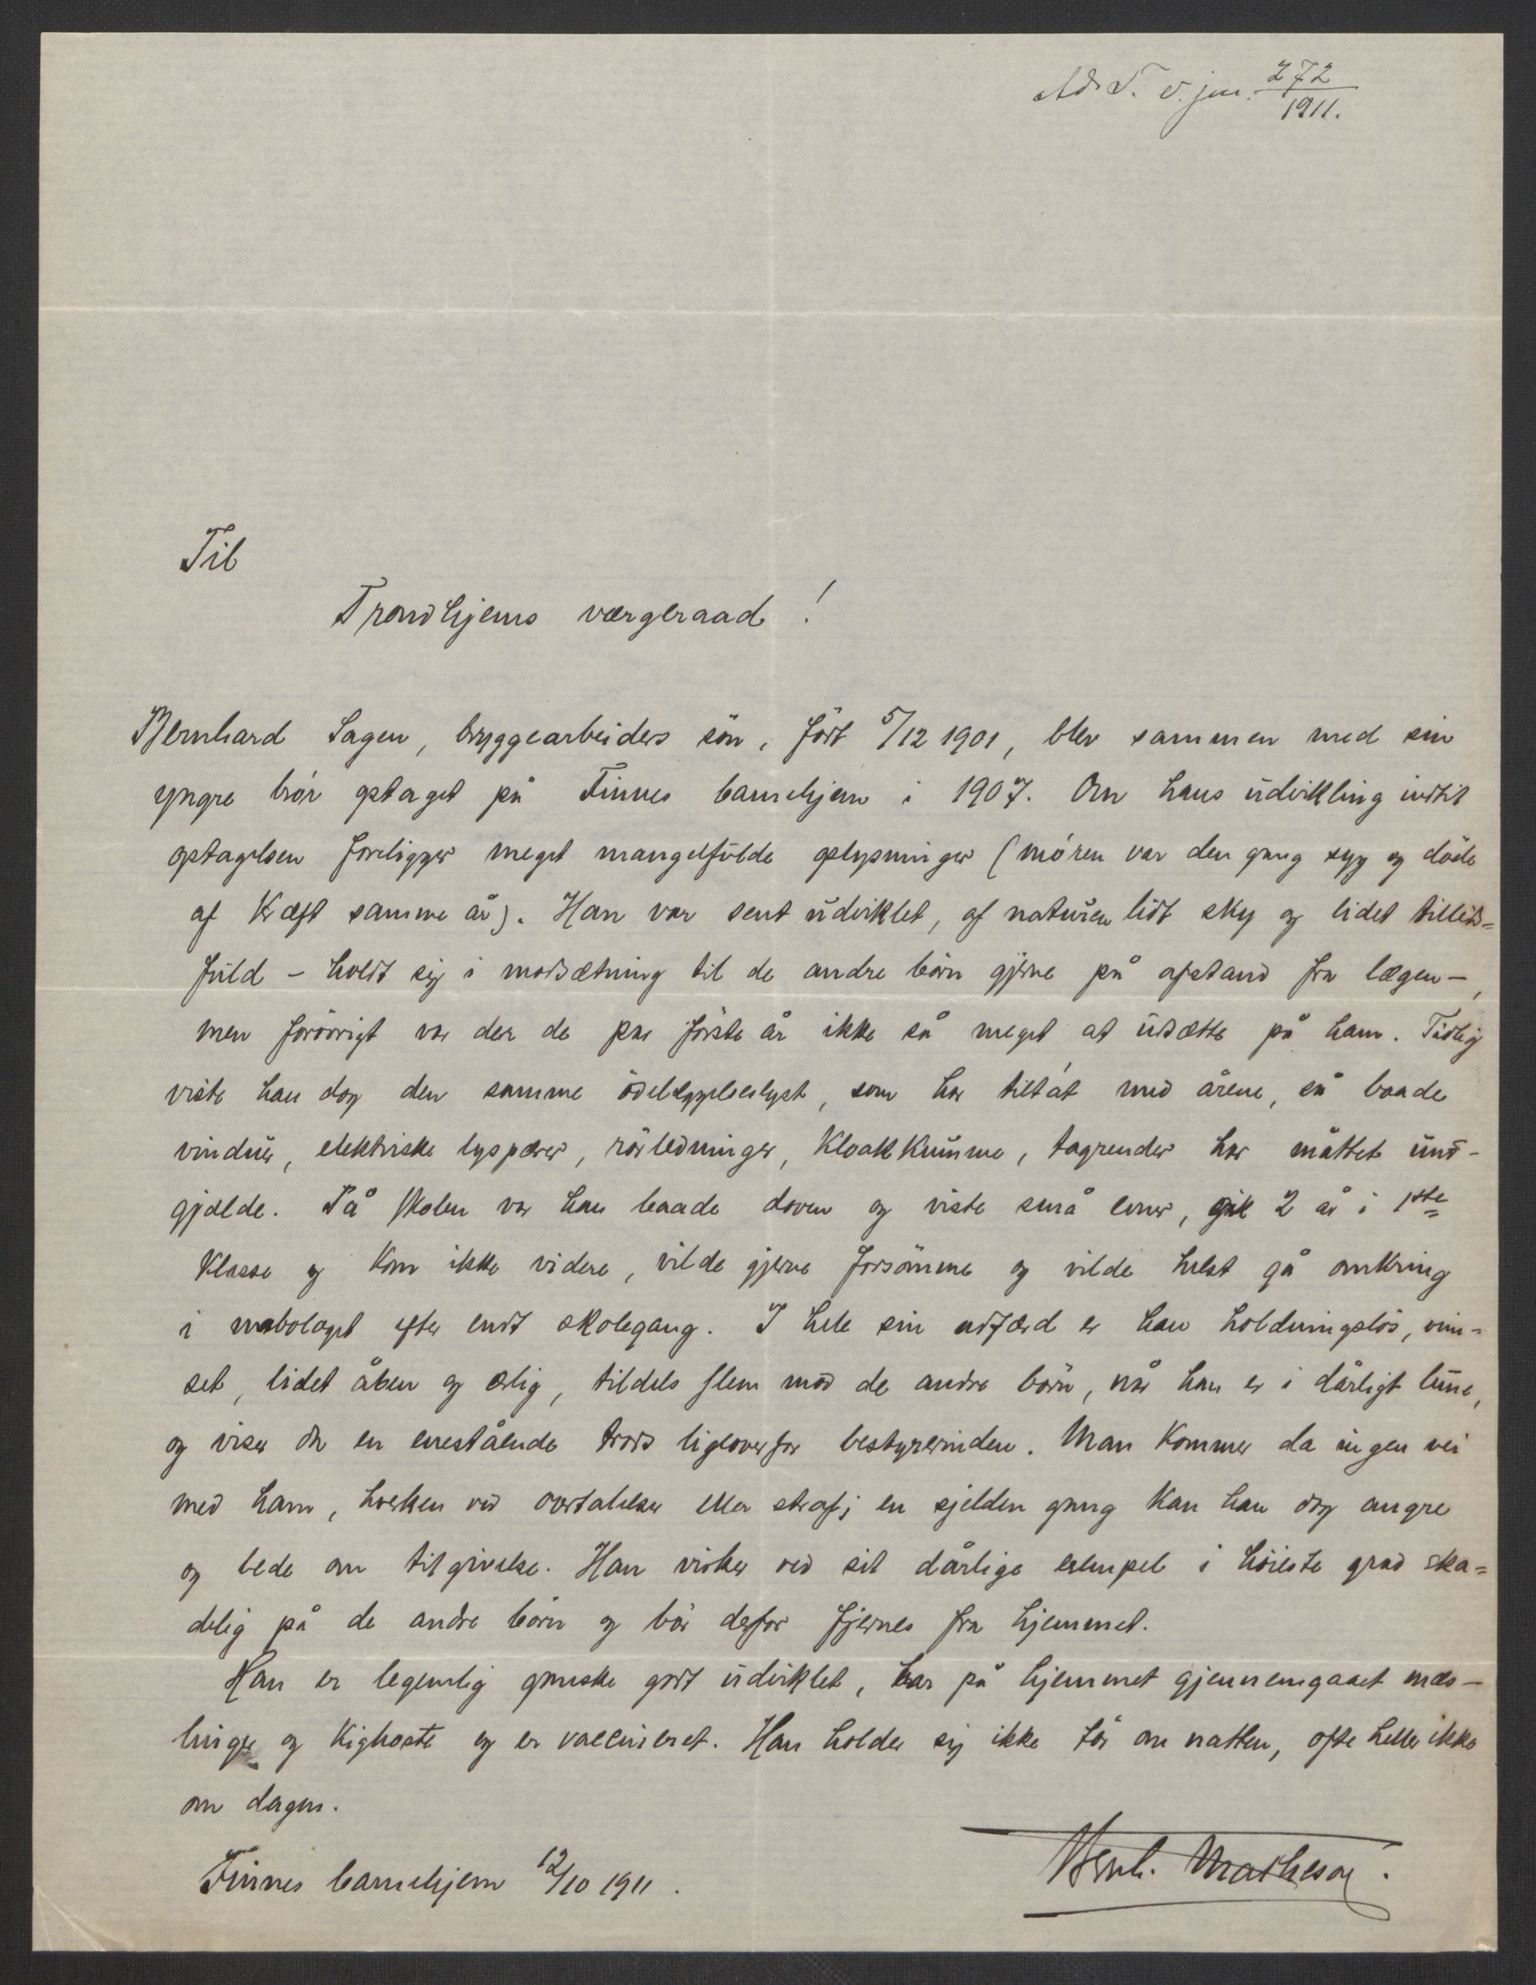 Ad. T. v. jnr. 272/1911.
Til
Trondhjems værgeraad!
Bernhard Sagen, bryggearbeiders sön, født 5/12 1901, blev sammen med sin
yngre brór optaget på Finnes barnehjem i 1907. Om hans udvikling indtil
optagelsen foreligger meget mangelfulde oplysninger (móren var den gang syg og döde
af kræft samme år). Han var sent udviklet, af naturen lidt sky og lidet tillids=
fuld – holdt sig i modsætning til de andre börn gjerne på afstand fra lægen –,
men forövrigt var der de par förste år ikke så meget at udsætte på ham. Tidlig
viste han dog den samme ödelæggelseslyst, som har tiltát med årene, så baade
vinduer, elektriske lyspærer, rörledninger, kloakkumme, tagrender har måttet und-
gjælde. På skolen var han baade doven og viste små evner, gik 2 år i 1ste
klasse og kom ikke videre, vilde gjerne forsömme og vilde helst gå omkring
i nabolaget efter endt skolegang. I hele sin adfærd er han holdningslös, vim=
set, lidet åben og ærlig, tildels slem mod de andre börn, når han er i dårligt lune,
og viser da en enestående trods ligeoverfor bestyrerinden. Man kommer da ingen vei
med ham, hverken ved overtalelser eller straf; en sjelden gang kan han dog angre
og bede om tilgivelse. Han virker ved sit dårlige exempel i höieste grad ska=
delig på de andre börn og bör derfor fjernes fra hjemmet.
Han er legemlig ganske godt udviklet, har på hjemmet gjennemgaaet mæs–
linger og kighoste og er vaccineret. Han holder sig ikke tör om natten, ofte heller ikke
om dagen.
Finnes barnehjem 12/10 1911.
Bernh. Matheson.